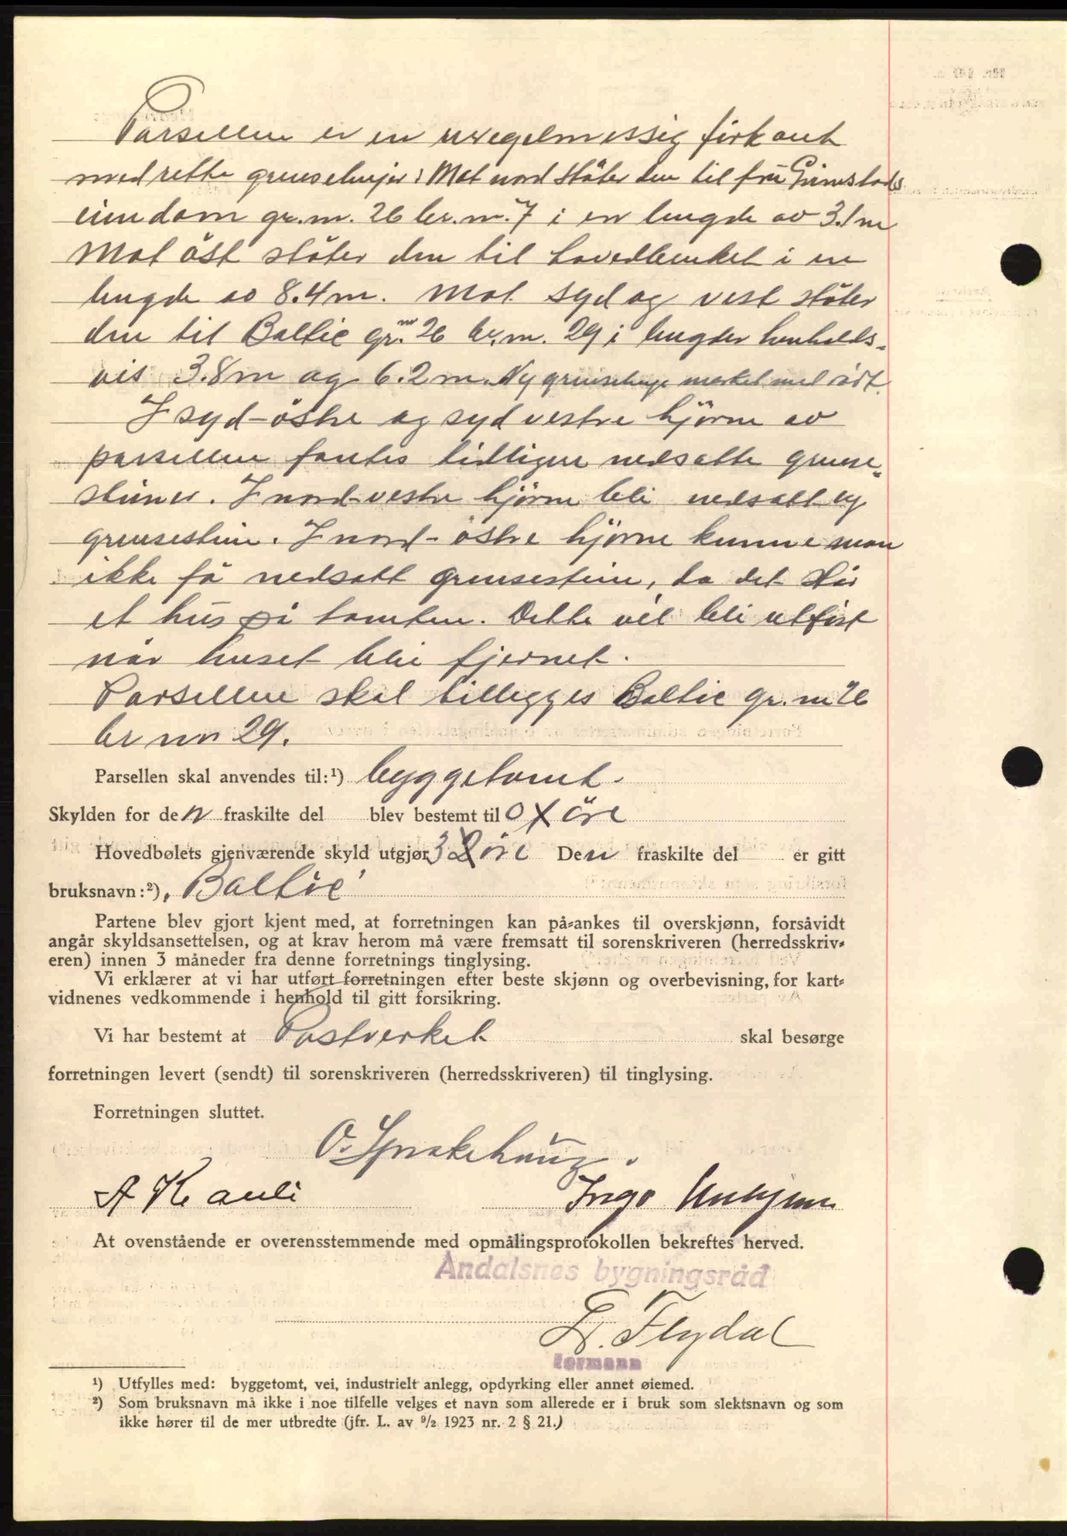 Parsellen er en uregelmessig firkant
med rette grenselinjer: Mot nord støter den til fru Grimstads
eiendom gr.nr. 26 br.nr. 7 i en lengde av 3.1 m
Mot öst støter den til hovedbruket i en
lengde av 8.4 m. Mot syd og vest støter
den til Baltic gr.nr. 26 br.nr. 29 i lengder henholds-
vis 3.8 m og 6.2 m. Ny grenselinje merket med rødt.
I syd-östre og syd vestre hjörne av
parsellen fantes tidligere nedsatte grense-
steiner. I nord-vestre hjörne ble nedsatt ny
grensestein. I nord-östre hjörne kunne man
ikke få nedsatt grensestein, da det står
et hus på tomten. Dette vil bli utfört
når huset blir fjernet.
Parsellen skal tillegges Baltic gr.nr 26
br nr 29.
Parsellen skal anvendes til:¹) byggetomt.
Skylden for den fraskilte del blev bestemt til 0 öre
Hovedbølets gjenværende skyld utgjør 3 öre Den fraskilte del er gitt
bruksnavn:²) "Baltic"
Partene blev gjort kjent med, at forretningen kan på-ankes til overskjønn, forsåvidt
angår skyldsansettelsen, og at krav herom må være fremsatt til sorenskriveren (herredsskriv-
eren) innen 3 måneder fra denne forretnings tinglysing.
Vi erklærer at vi har utført forretningen efter beste skjønn og overbevisning, for kart-
vidnenes vedkommende i henhold til gitt forsikring.
Vi har bestemt at Postverket skal besørge
forretningen levert (sendt) til sorenskriveren (herredsskriveren) til tinglysing.
Forretningen sluttet.
O. Sprakehaug.
A Kavli Ingv
At ovenstående er overensstemmende med opmålingsprotokollen bekreftes herved.
Åndalsnes bygningsråd
Flydal
formann
¹) Utfylles med: byggetomt, vei, industrielt anlegg, opdyrking eller annet øiemed.
²) Som bruksnavn må ikke i noe tilfelle velges et navn som allerede er i bruk som slektsnavn og som
ikke hører til de mer utbredte (jfr. L. av 9/2 1923 nr. 2 § 21.)